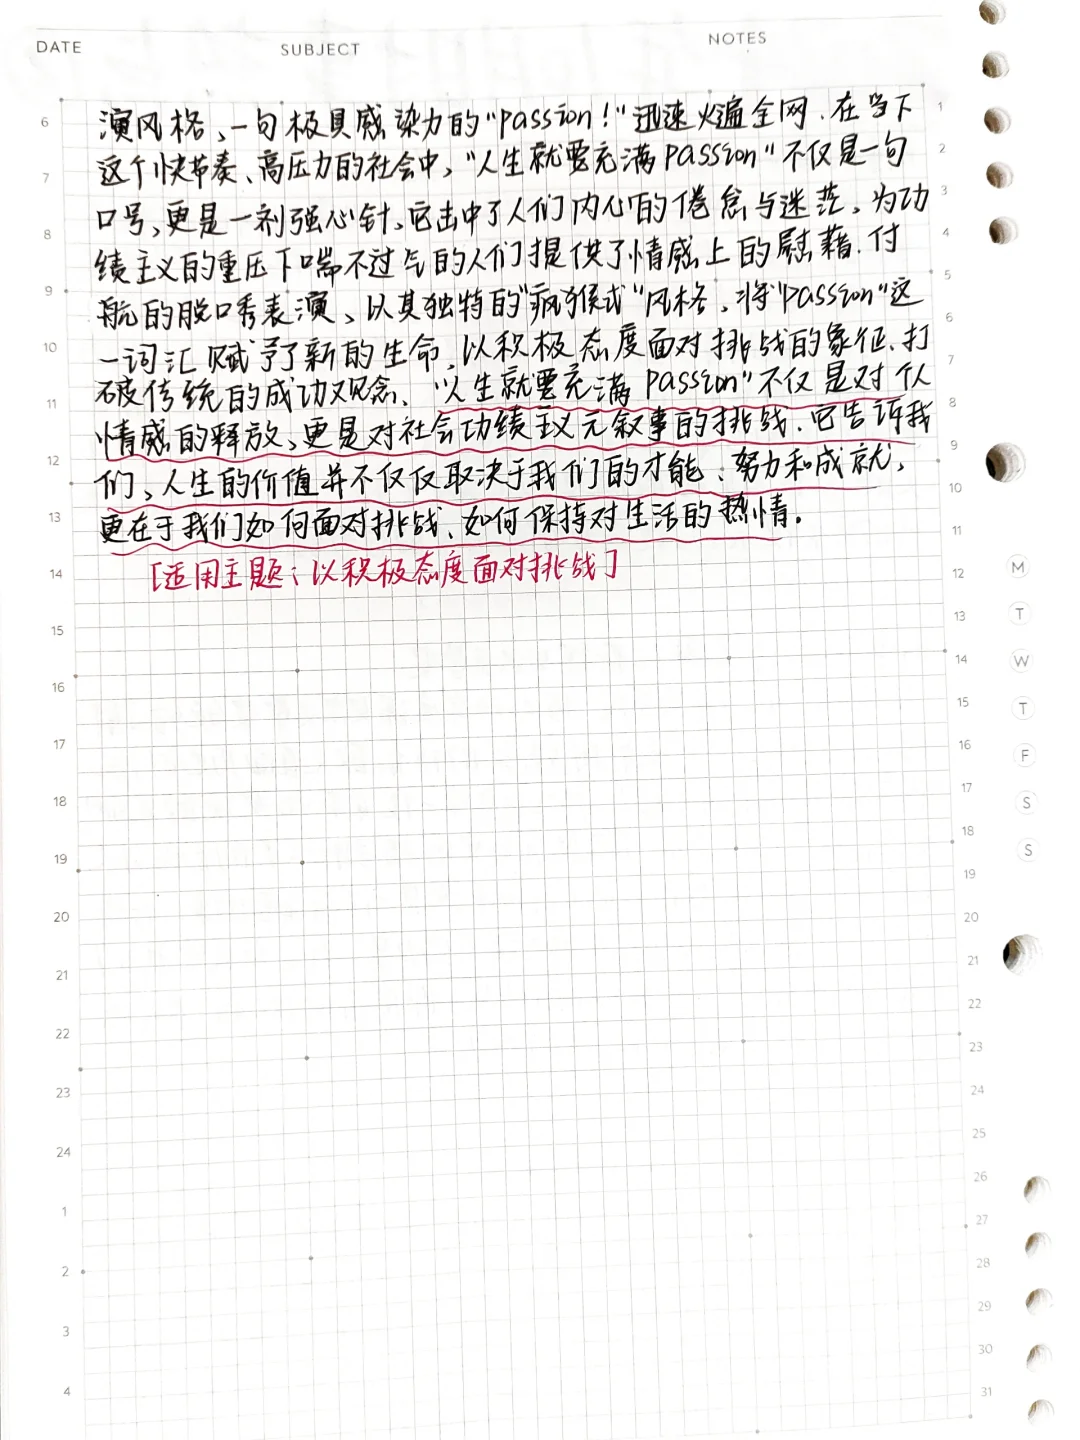 DATE SUBJECT NOTES
演风格,一句极具感染力的“passion!”迅速火遍全网.在当下
这个快节奏、高压力的社会中,“人生就要充满passion”不仅是一句
口号,更是一剂强心针,它击中了人们内心的倦怠与迷茫,为功
绩主义的重压下喘不过气的人们提供了情感上的慰藉.付
航的脱口秀表演,以其独特的“疯猴式”风格,将“passion”这
一词汇赋予了新的生命,以积极态度面对挑战的象征.打
破传统的成功观念、“人生就要充满passion”不仅是对个人
情感的释放,更是对社会功绩主义元叙事的挑战.它告诉我
们,人生的价值并不仅仅取决于我们的才能、努力和成就,
更在于我们如何面对挑战、如何保持对生活的热情。
[适用主题:以积极态度面对挑战]
6
7
8
9
10
11
12
13
14
15
16
17
18
19
20
21
22
23
24
1
2
3
4
1
2
3
4
5
6
7
8
9
10
11
12
13
14
15
16
17
18
19
20
21
22
23
24
25
26
27
28
29
30
31
M
T
W
T
F
S
S